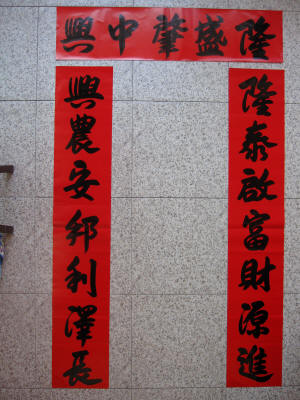 隆盛肇中興
隆泰啟富財源進
興農安邦利澤長